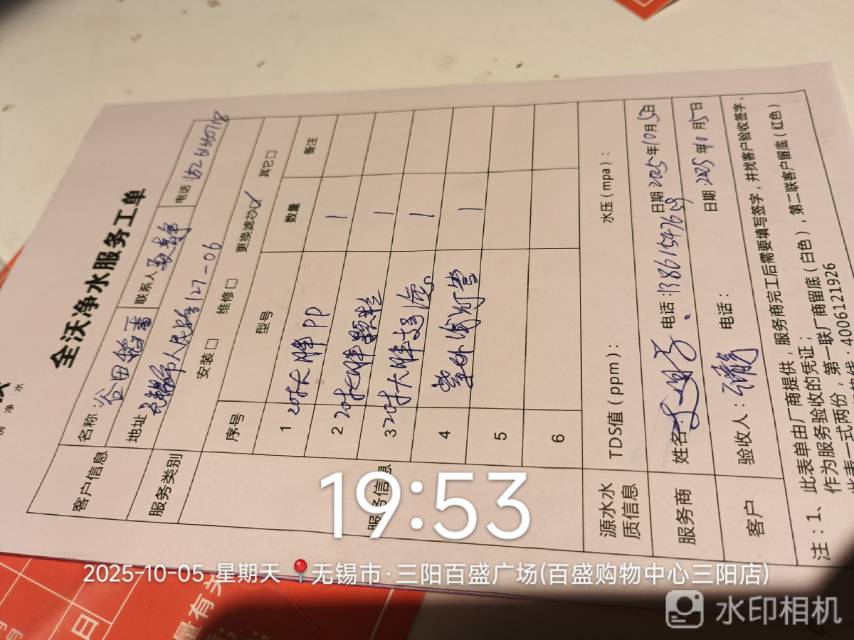 净水
全沃净水服务工单
客户信息 名称 谷田稻香 联系人 电话
地址 无锡市人民路127-06
服务类别 安装□ 维修□ 更换滤芯☑ 其它□
服务信息 序号 型号 数量 备注
1 20寸大胖PP 1
2 20寸大胖颗粒 1
3 20寸大胖 1
4 紫外线灯管 1
5
6
源水水质信息 TDS值（ppm）： 水压（mpa）：
服务商 姓名： 电话： 日期 2025年10月5日
客户 验收人： 电话： 日期 2025年10月5日
注：1、此表单由厂商提供，服务商完工后需要填写签字，并找客户验收签字，
作为服务验收的凭证；
此表一式两份，第一联厂商留底（白色），第二联客户留底（红色）
4006121926
19:53
2025-10-05 星期天 无锡市·三阳百盛广场(百盛购物中心三阳店)
水印相机